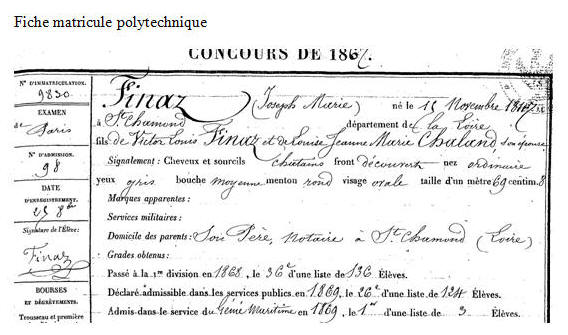 Fiche matricule polytechnique
CONCOURS DE 1867.
N° D'IMMATRICULATION.
9830
EXAMEN
de Paris
N° D'ADMISSION.
98
DATE
D'ENREGISTREMENT.
25 8bre
Signature de l'Élève:
Finaz
BOURSES
ET DÉGRÈVEMENTS.
Trousseau et première
Finaz (Joseph Marie) né le 15 Novembre
à St Chamond département de la Loire
fils de Victor Louis Finaz et de Louise Jeanne Marie Chaland son épouse
Signalement: Cheveux et sourcils chatains front découvert nez ordinaire
yeux gris bouche moyenne menton rond visage ovale taille d'un mètre 69 centim. 8
Marques apparentes:
Services militaires:
Domicile des parents: Son Père, notaire à St Chamond (Loire)
Grades obtenus:
Passé à la 1re division en 1868, le 36e d'une liste de 136 Élèves.
Déclaré admissible dans les services publics en 1869, le 26e d'une liste de 124 Élèves.
Admis dans le service du Génie Maritime en 1869, le 1er d'une liste de 3 Élèves.